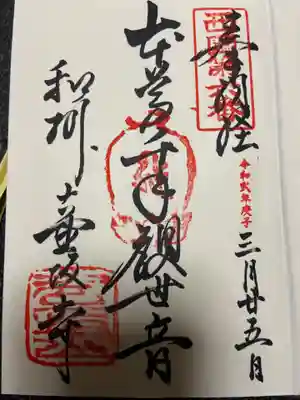 奉拝
西国第六番
令和弐年庚子
三月廿五日
本尊千手観世音
和州
壷阪寺